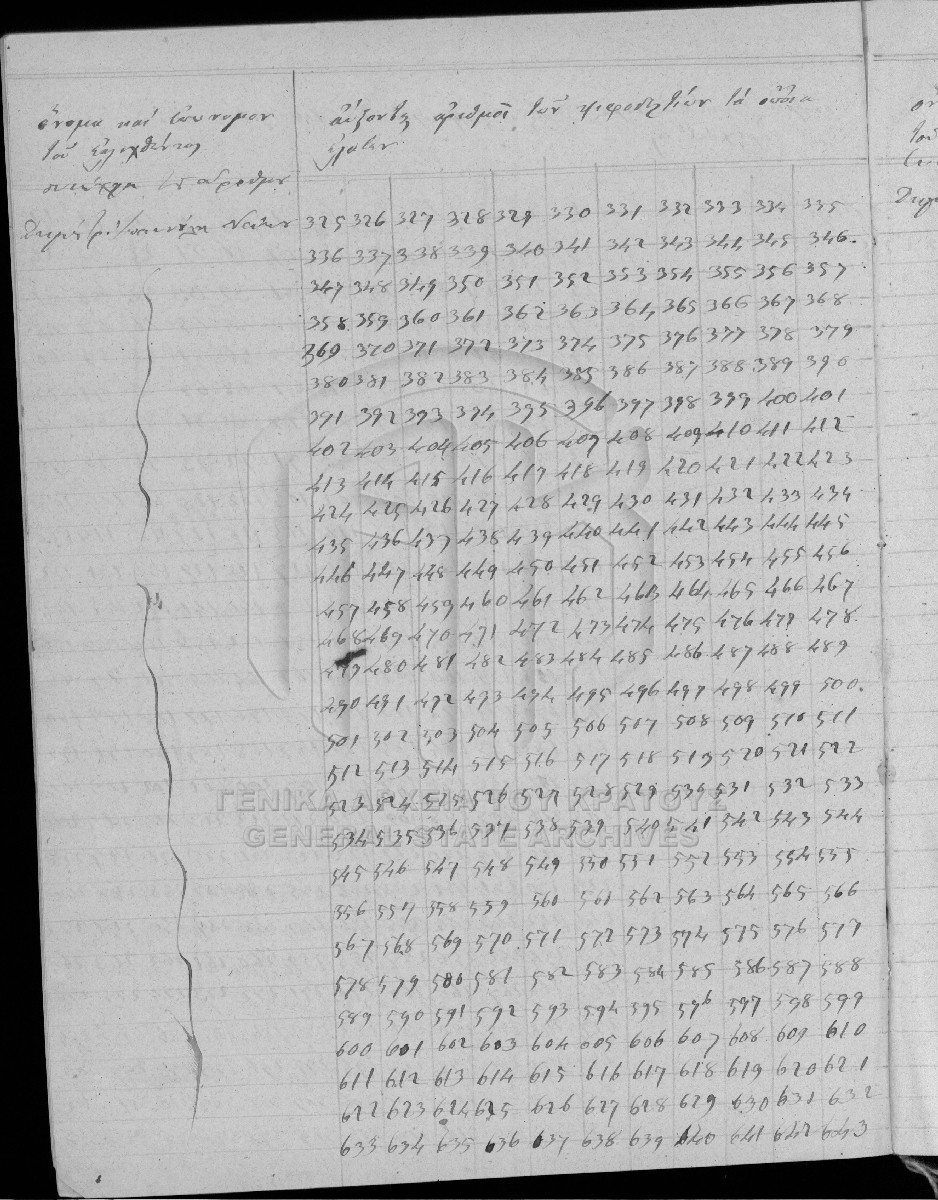 ὄνομα καὶ ἐπώνυμον
τοῦ ἐκλεχθέντος
αὔξοντες ἀριθμοὶ τῶν ψηφοδελτίων τὰ ὁποῖα
ἔλαβεν
325 326 327 328 329 330 331 332 333 334 335
336 337 338 339 340 341 342 343 344 345 346.
347 348 349 350 351 352 353 354 355 356 357
358 359 360 361 362 363 364 365 366 367 368
369 370 371 372 373 374 375 376 377 378 379
380 381 382 383 384 385 386 387 388 389 390
391 392 393 394 395 396 397 398 399 400 401
402 403 404 405 406 407 408 409 410 411 412
413 414 415 416 417 418 419 420 421 422 423
424 425 426 427 428 429 430 431 432 433 434
435 436 437 438 439 440 441 442 443 444 445
446 447 448 449 450 451 452 453 454 455 456
457 458 459 460 461 462 463 464 465 466 467
468 469 470 471 472 473 474 475 476 477 478.
479 480 481 482 483 484 485 486 487 488 489
490 491 492 493 494 495 496 497 498 499 500.
501 502 503 504 505 506 507 508 509 510 511
512 513 514 515 516 517 518 519 520 521 522
523 524 525 526 527 528 529 530 531 532 533
ΓΕΝΙΚΑ ΑΡΧΕΙΑ ΤΟΥ ΚΡΑΤΟΥΣ
534 535 536 537 538 539 540 541 542 543 544
GENERAL STATE ARCHIVES
545 546 547 548 549 550 551 552 553 554 555
556 557 558 559 560 561 562 563 564 565 566
567 568 569 570 571 572 573 574 575 576 577
578 579 580 581 582 583 584 585 586 587 588
589 590 591 592 593 594 595 596 597 598 599
600 601 602 603 604 605 606 607 608 609 610
611 612 613 614 615 616 617 618 619 620 621
622 623 624 625 626 627 628 629 630 631 632
633 634 635 636 637 638 639 640 641 642 643